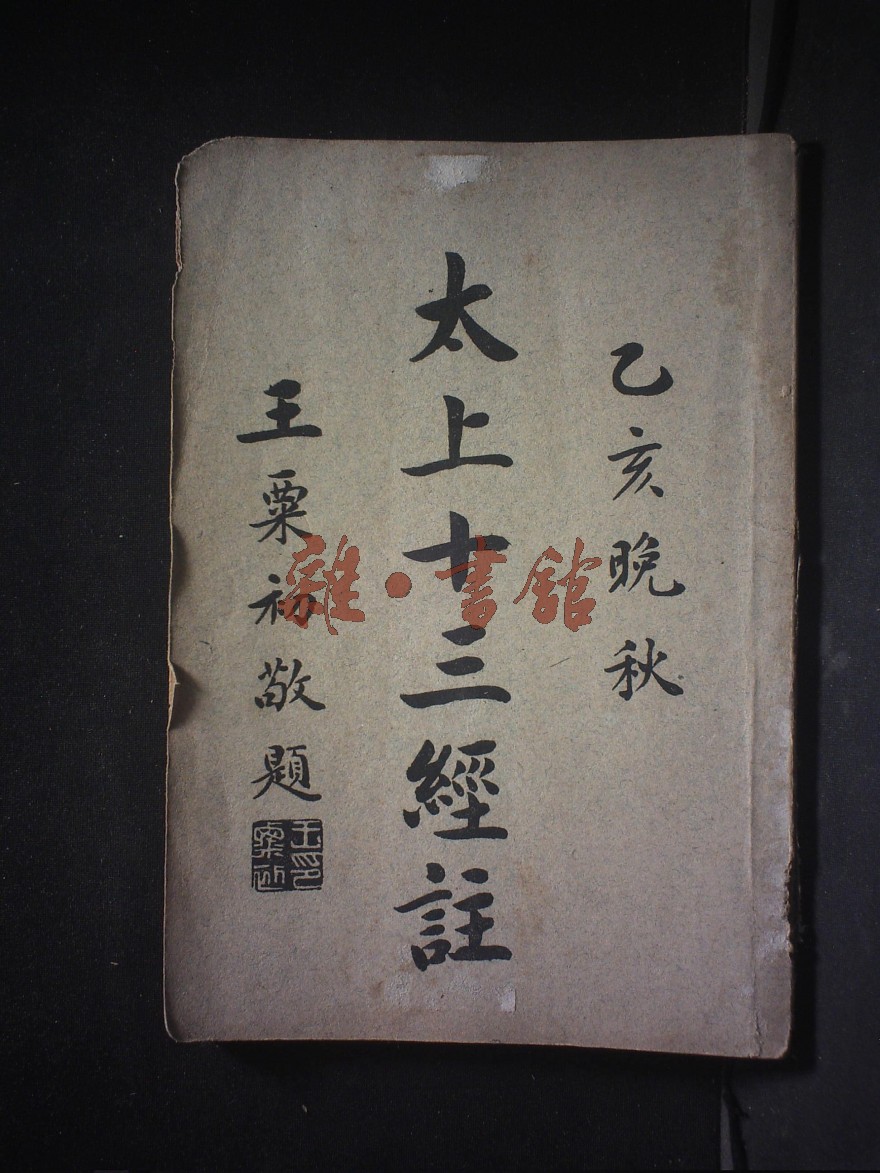 乙亥晚秋
太上十三經註
王粟初敬題
雜·書館